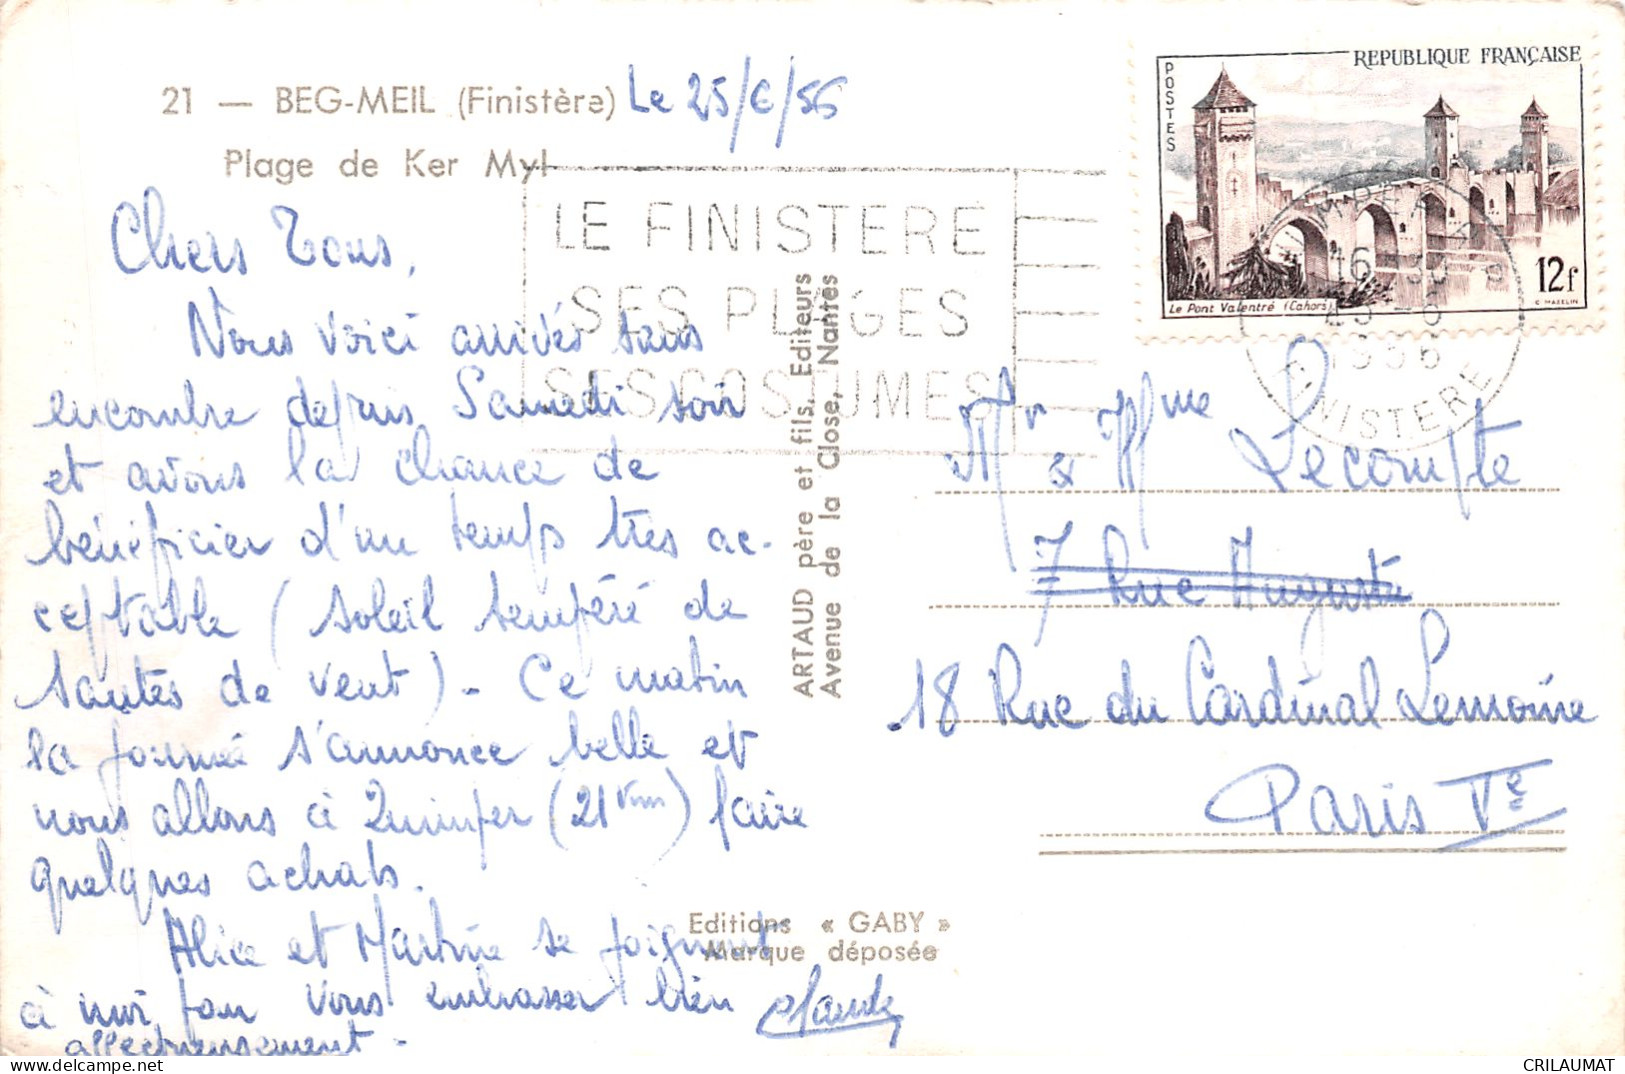 21 — BEG-MEIL (Finistère) Le 25/6/56
Plage de Ker Myl
Chers Tous,
Nous voici arrivés sans
encombre depuis Samedi soir
et avons la chance de
bénéficier d'un temps très ac-
ceptable (soleil tempéré de
sautes de vent) - Ce matin
la journée s'annonce belle et
nous allons à Quimper (21 km) faire
quelques achats.
Alice et Martine se joignent
à moi pour vous embrasser bien
affectueusement.
Claude
LE FINISTERE
SES PLAGES
SES COSTUMES
ARTAUD père et fils, Editeurs
Avenue de la Close, Nantes
Editions « GABY »
Marque déposée
REPUBLIQUE FRANÇAISE
POSTES
Le Pont Valentré (Cahors)
12f
C. MAZELIN
16
25 - 6
1956
FINISTERE
Mr & Mme Lecompte
7 Rue Auguste
18 Rue du Cardinal Lemoine
Paris Ve
CRILAUMAT